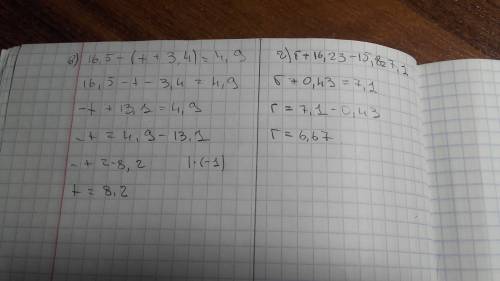 в) 16,5 - (t + 3,4) = 4,9
16,5 - t - 3,4 = 4,9
-t + 13,1 = 4,9
-t = 4,9 - 13,1
-t = -8,2 |·(-1)
t = 8,2
г) r + 16,23 - 15,8 = 7,1
r + 0,43 = 7,1
r = 7,1 - 0,43
r = 6,67